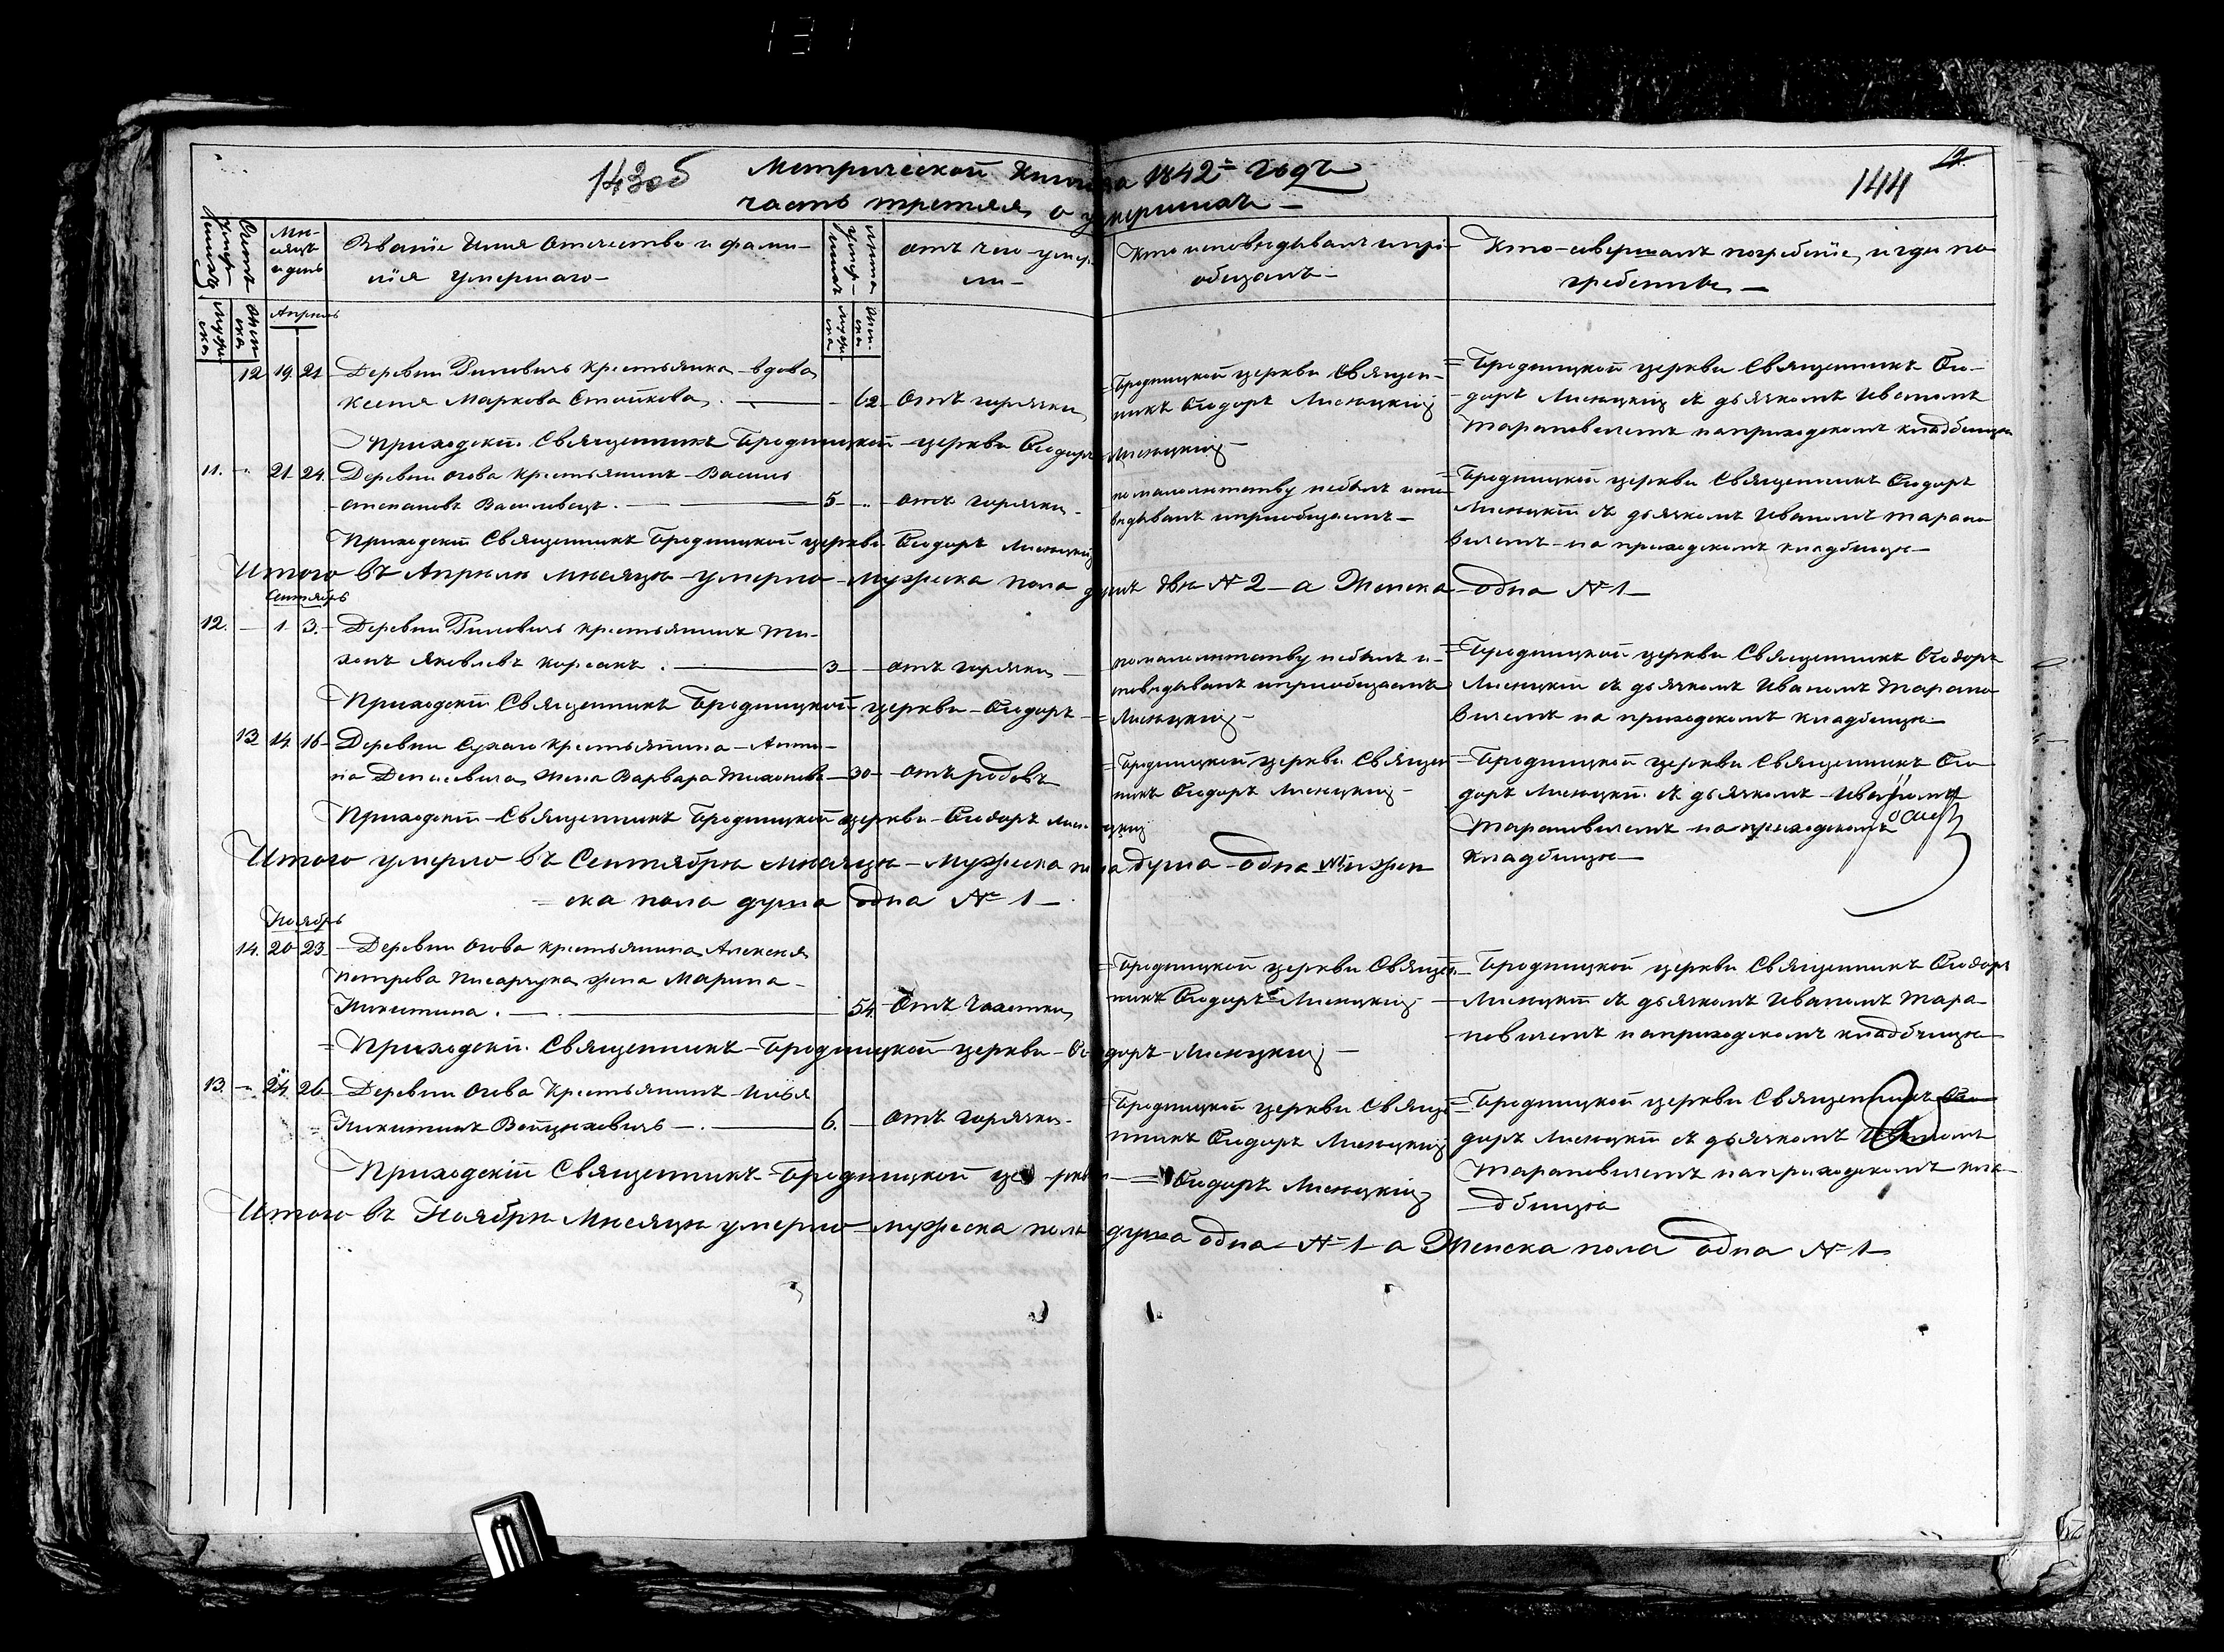 131
143об
Метрической Книги на 1842й годъ
часть третяя, о умершихъ
144
12.
Счетъ умершихъ
Мѣсяцъ и день
Званіе Имя Отечество и фами-
лія умершаго
лѣта умершихъ
отъ чего умер-
ли
Кто исповѣдывалъ и прі-
общалъ
Кто совершалъ погребеніе, и гдѣ по-
гребены
Мужеска
Женска
Апрель
Мужеска
Женска
12 19 21 Деревни Гиневичь крестьянка вдова
Ксенія Маркова Стойкова 62 Отъ горячки
Бродницкой церкви Священ-
никъ Ѳеодоръ Лисецкій
Бродницкой церкви Священникъ Ѳео-
доръ Лисецкій съ дьячкомъ Иваномъ
Тарановичемъ на приходскомъ кладбищѣ
Приходскій Священникъ Бродницкой церкви Ѳеодоръ Лисецкій
11. 21 24 Деревни Огова крестьянинъ Василь
Степановъ Василевецъ 5 отъ горячки
по малолѣтству небылъ испо-
вѣдыванъ и пріобщаемъ
Бродницкой церкви Священникъ Ѳеодоръ
Лисецкій съ дьячкомъ Иваномъ Тарано-
вичемъ на приходскомъ кладбищѣ
Приходскій Священникъ Бродницкой церкви Ѳеодоръ Лисецкій
Итого въ Апрелѣ мѣсяцѣ умерло Мужеска пола душъ двѣ № 2 а Женска одна № 1
Сентябрь
12. 1 3. Деревни Гиневичь крестьянинъ Ти-
хонъ Яковлевъ Корсакъ 3 отъ горячки
по малолѣтству небылъ и-
сповѣдыванъ и пріобщаемъ
Бродницкой церкви Священникъ Ѳеодоръ
Лисецкій съ дьячкомъ Иваномъ Тарано-
вичемъ на приходскомъ кладбищѣ
Приходскій Священникъ Бродницкой церкви Ѳеодоръ Лисецкій
13 14 16 Деревни Сухаго крестьянина Анто-
на Денисевича жена Варвара Тихонова 30 отъ родовъ
Бродницкой церкви Священ-
никъ Ѳеодоръ Лисецкій
Бродницкой церкви Священникъ Ѳео-
доръ Лисецкій съ дьячкомъ Иваномъ
Тарановичемъ на приходскомъ
кладбищѣ
Приходскій Священникъ Бродницкой церкви Ѳеодоръ Лисецкій
Итого умерло въ Сентябрѣ мѣсяцѣ Мужеска пола душа одна №1 и жен-
ска пола душа одна № 1
Ноябрь
14. 20 23 Деревни Огова крестьянина Алексея
Петрова Писарчука жена Марина
Никитина 54. Отъ чахотки
Бродницкой церкви Священ-
никъ Ѳеодоръ Лисецкій
Бродницкой церкви Священникъ Ѳеодоръ
Лисецкій съ дьячкомъ Иваномъ Тара-
новичемъ на приходскомъ кладбищѣ
Приходскій Священникъ Бродницкой церкви Ѳеодоръ Лисецкій
13. 24 26 Деревни Огова Крестьянинъ Илья
Никитинъ Войцеховичь 6. отъ горячки
Бродницкой церкви Священ-
никъ Ѳеодоръ Лисецкій
Бродницкой церкви Священникъ Ѳео-
доръ Лисецкій съ дьячкомъ Иваномъ
Тарановичемъ на приходскомъ кла-
дбищѣ
Приходскій Священникъ Бродницкой церкви Ѳеодоръ Лисецкій
Итого въ Ноябрѣ Мѣсяцѣ умерло мужеска пола душа одна № 1 а Женска пола одна № 1